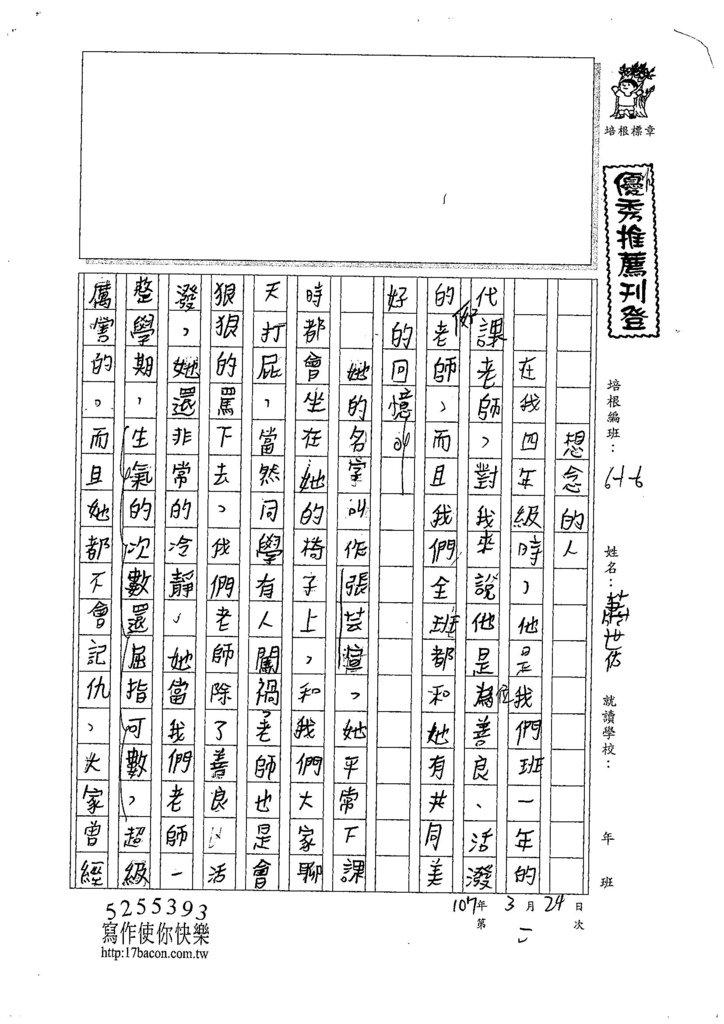 培根標章
優秀推薦刊登
培根編班：64-6
姓名：
就讀學校：
年 班
107年3月24日
第二次
想念的人
在我四年級時，他是我們班一年的
代課老師，對我來說他是為位善良、活潑
的好老師，而且我們全班都和她有共同美
好的回憶
她的名字叫作張芸瑄，她平常下課
時都會坐在她的椅子上，和我們大家聊
天打屁，當然同學有人闖禍老師也是會
狠狠的罵下去，我們老師除了善良、活
潑，她還非常的冷靜，她當我們老師一
整學期，生氣的次數還屈指可數，超級
厲害的。而且她都不會記仇，大家曾經
5255393
寫作使你快樂
http:17bacon.com.tw